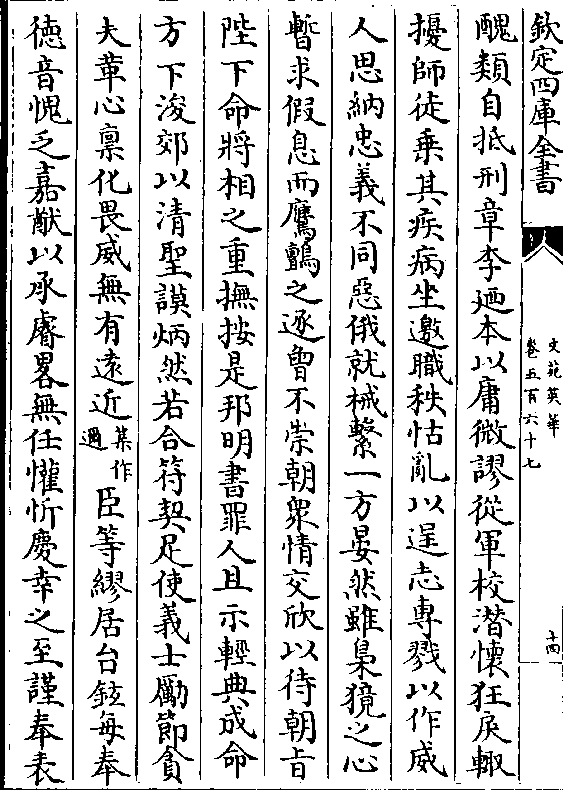 欽定四庫全書
文苑英華
卷五百六十七
十四
醜類自抵刑章李廼本以庸微謬從軍校潜懷狂戾輙
擾師徒乗其疾病坐邀職秩怙亂以逞志專戮以作威
人思納忠義不同惡俄就械繫一方晏然雖梟獍之心
暫求假息而鷹鸇之逐曽不崇朝衆情交欣以待朝旨
陛下命將相之重撫按是邦明書罪人且示輕典成命
方下浚郊以清聖謨炳然若合符契足使義士勵節貪
夫革心禀化畏威無有遠近集作邇臣等繆居台鉉每奉
徳音愧乏嘉猷以承睿畧無任懽忻慶幸之至謹奉表